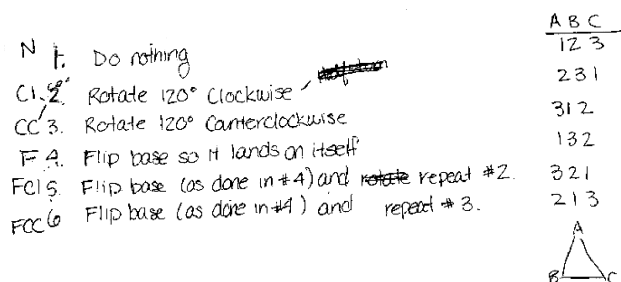 A B C
N 1. Do nothing 1 2 3
Cl 2. Rotate 120° Clockwise 2 3 1
CC 3. Rotate 120° Canterclockwise 3 1 2
F 4. Flip base so it lands on itself 1 3 2
FCl 5. Flip base (as done in #4) and repeat #2. 3 2 1
FCC 6 Flip base (as done in #4) and repeat #3. 2 1 3
A
B C